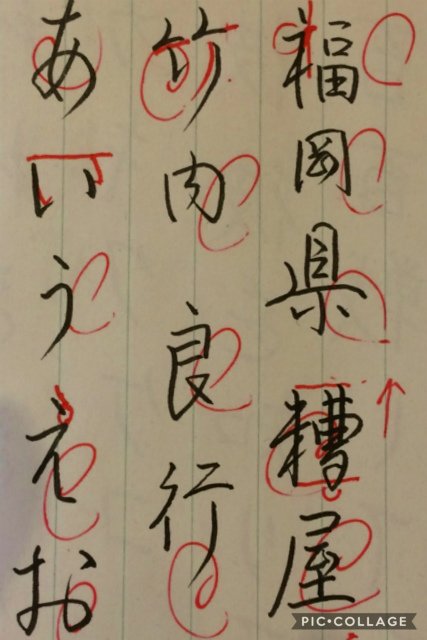 福岡県糟屋
竹内良行
あいうえお
PIC•COLLAGE